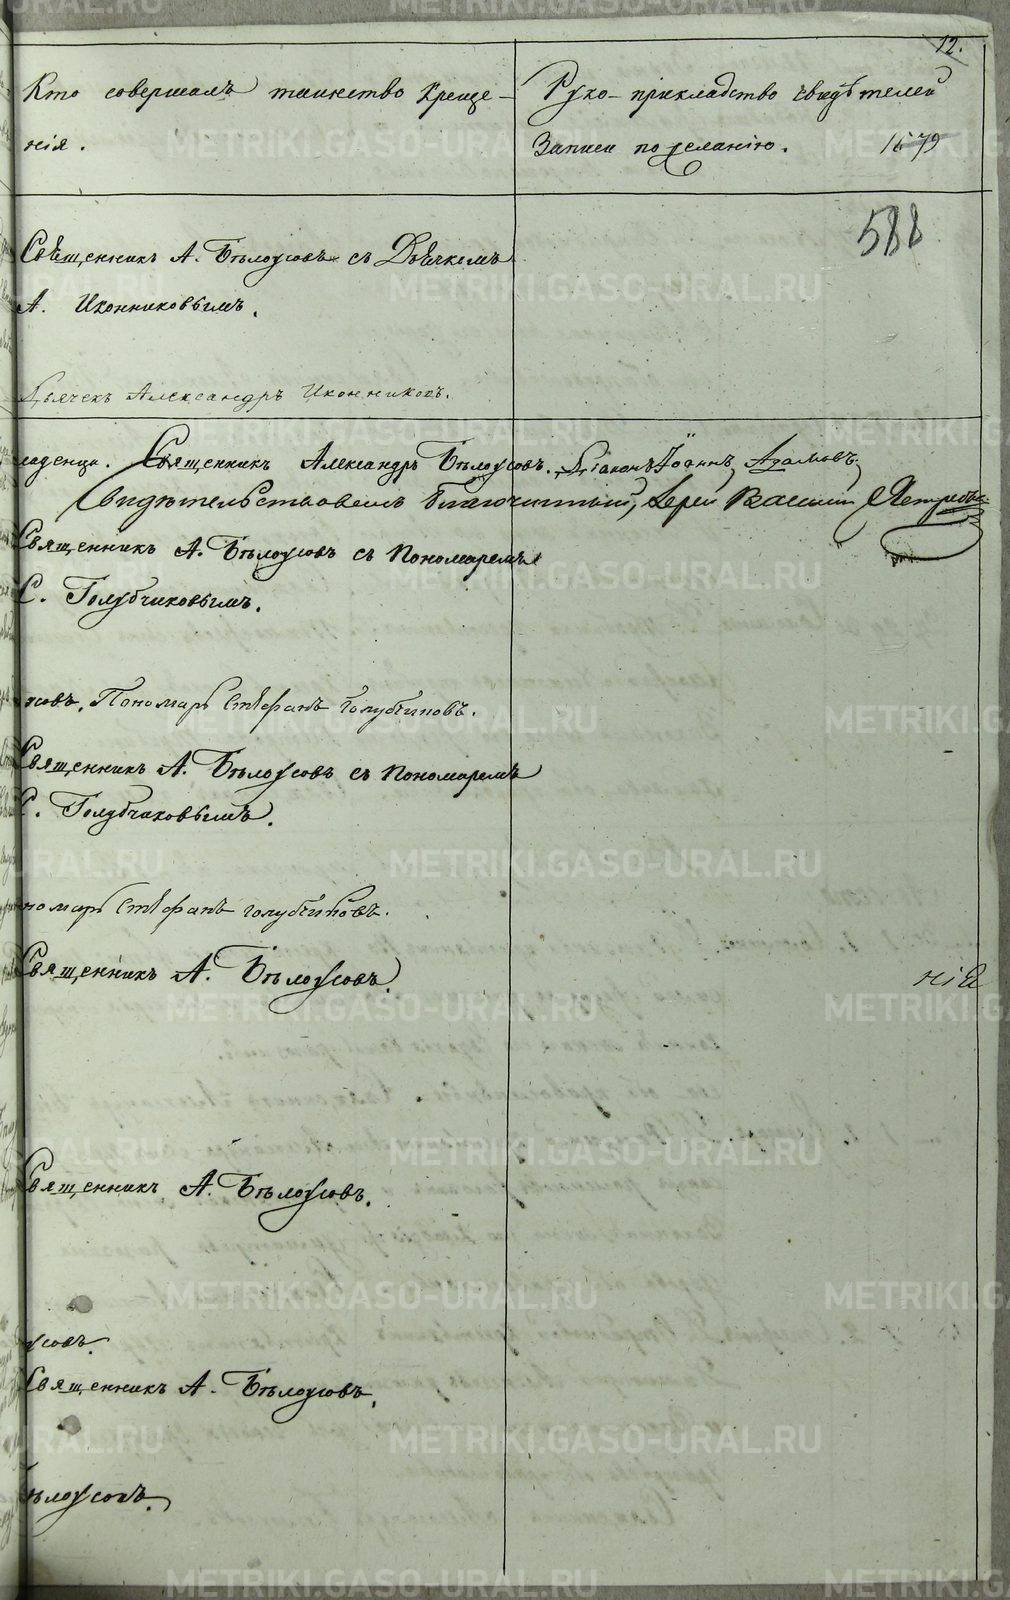 12.
Кто совершалъ таинство Креще-
нія.
Руко-прикладство свидѣтелей
Записи по желанію. 1679
588
Священникъ А. Бѣлоусовъ съ Дьячкомъ
А. Иконниковымъ.
Дьячекъ Александръ Иконниковъ.
Священникъ Александръ Бѣлоусовъ. Діаконъ Іоаннъ Адамовъ.
Свидѣтельствовалъ благочинный, Іерей Василій
Священникъ А. Бѣлоусовъ съ Пономаремъ
С. Голубчиковымъ.
усовъ. Пономарь Стефанъ Голубчиковъ.
Священникъ А. Бѣлоусовъ съ Пономаремъ
С. Голубчиковымъ.
номарь Стефанъ Голубчиковъ.
Священникъ А. Бѣлоусовъ.
нія
Священникъ А. Бѣлоусовъ.
усовъ.
Священникъ А. Бѣлоусовъ.
ѣлоусовъ.
METRIKI.GASO-URAL.RU